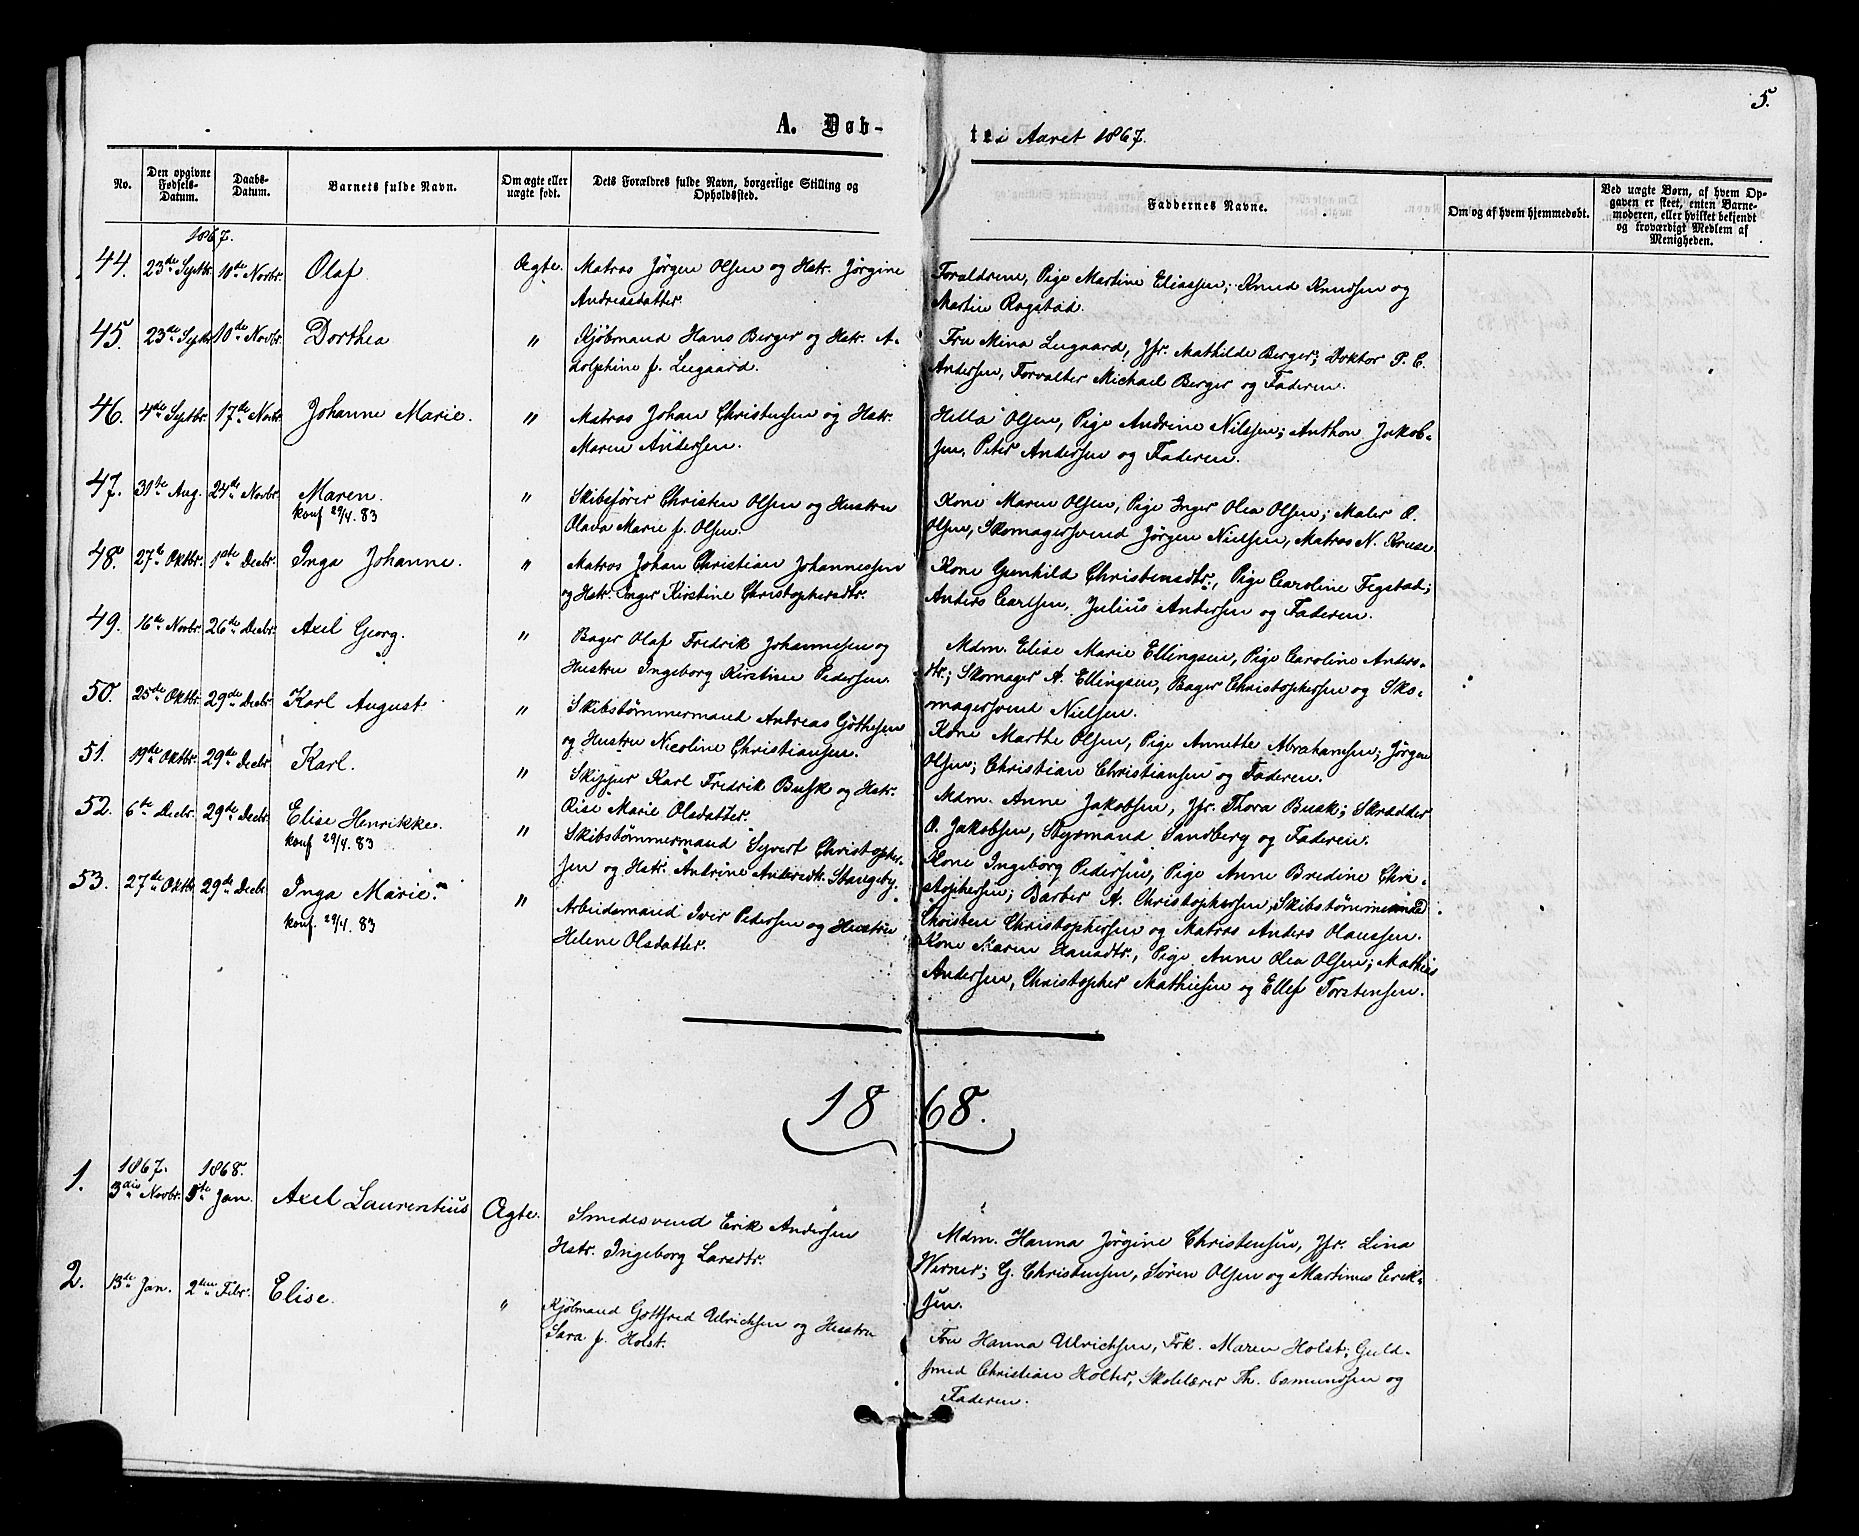 5.
A. Døb-
te i Aaret 1867.
No.
Den opgivne Fødsels-Datum.
Daabs-Datum.
Barnets fulde Navn.
Om ægte eller uægte født.
Dets Forældres fulde Navn, borgerlige Stilling og Opholdssted.
Faddernes Navne.
Om og af hvem hjemmedøbt.
Ved uægte Børn, af hvem Opgaven er skeet, enten Barnemoderen, eller hvilket bekjendt og troværdigt Medlem af Menigheden.
1867.
44. 23de Septbr. 10de Novbr. Olaf Ægte. Matros Jørgen Olsen og Hstr. Jørgine
Andreasdatter.
Forældrene, Pige Martine Eliassen; Knud Knudsen og
Martin Rogstad.
45. 23de Septbr. 10de Novbr. Dorthea " Kjøbmand Hans Berger og Hstr. A-
dolphine f. Lugaard.
Fru Mina Lugaard, Jfr. Mathilde Berger; Doktor P. C.
Andersen, Forvalter Michael Berger og Faderen.
46. 4de Septbr. 17de Novbr. Johanne Marie. " Matros Johan Christensen og Hstr.
Maren Andersen.
Hella Olsen, Pige Andrine Nilssen; Anthon Jakob-
sen, Peter Andersen og Faderen.
47. 31te Aug. 24de Novbr. Maren. " Skibsfører Christen Olsen og Hustru
konf 29/4. 83
Olava Marie f. Olsen.
Kone Maren Olsen, Pige Inger Olea Olsen; Maler O.
Olsen, Skomagersvend Jørgen Nielsen, Matros N. Kruse.
48. 27de Oktbr. 1ste Decbr. Inga Johanne. " Matros Johan Christian Johannessen
og Hstr. Inger Kirstine Christophersdtr.
Kone Gunhild Christensdtr., Pige Caroline Fegstad;
Anders Carlsen, Julius Andersen og Faderen.
49. 16de Novbr. 26de Decbr. Axel Georg. " Bager Olaf Fredrik Johannesen og
Hustru Ingeborg Kirstine Pedersen.
Mdm. Elise Marie Ellingsen, Pige Caroline Anders-
tr.; Skomager A. Ellingsen, Bager Christophersen og Sko-
magersvend Nielsen.
50. 25de Oktbr. 29de Decbr. Karl August. " Skibstømmermand Andreas Gøthesen
og Hustru Nicoline Christiansen.
Kone Marthe Olsen, Pige Annette Abrahamsen; Jørgen
Olsen; Christian Christiansen og Faderen.
51. 19de Oktbr. 29de Decbr. Karl. " Skipper Karl Fredrik Busk og Hstr.
Elise Marie Olsdatter.
Mdm. Anne Jakobsen, Jfr. Thora Busk; Skrædder
O. Jakobsen, Stysmand Sandberg og Faderen.
52. 6te Decbr. 29de Decbr. Elise Henrikke. " Skibstømmermand Syvert Christopher-
konf 29/4. 83
sen og Hstr. Andrine Andersdtr. Stangeby.
Kone Ingeborg Pedersen, Pige Anne Bredine Chri-
stophersen; Barber A. Christophersen, Skibstømmermand
Christen Christophersen og Matros Anders Olaussen.
53. 27de Oktbr. 29de Decbr. Inga Marie. " Arbeidsmand Iver Pedersen og Hustru
konf. 29/4. 83
Helene Olsdatter.
Kone Karen Hansdtr., Pige Anne Olea Olsen; Mathias
Andersen, Christopher Mathiesen og Ellef Torstensen.
1868.
1867. 1868.
1. 3die Novbr. 5te Jan. Axel Laurentius Ægte. Smedesvend Erik Andersen
Hstr. Ingeborg Larsdtr.
Mdm. Hanna Jørgine Christensen, Jfr. Lina
Werner; G. Christensen, Søren Olsen og Martinus Erik-
sen.
2. 13de Jan. 2den Febr. Elise. " Kjøbmand Gottfred Ulrichsen og Hustru
Sara f. Holst.
Fru Hanna Ulrichsen, Frk. Maren Holst; Guld-
smed Christian Holter, Skolelærer Th. Esmundsen og
Faderen.